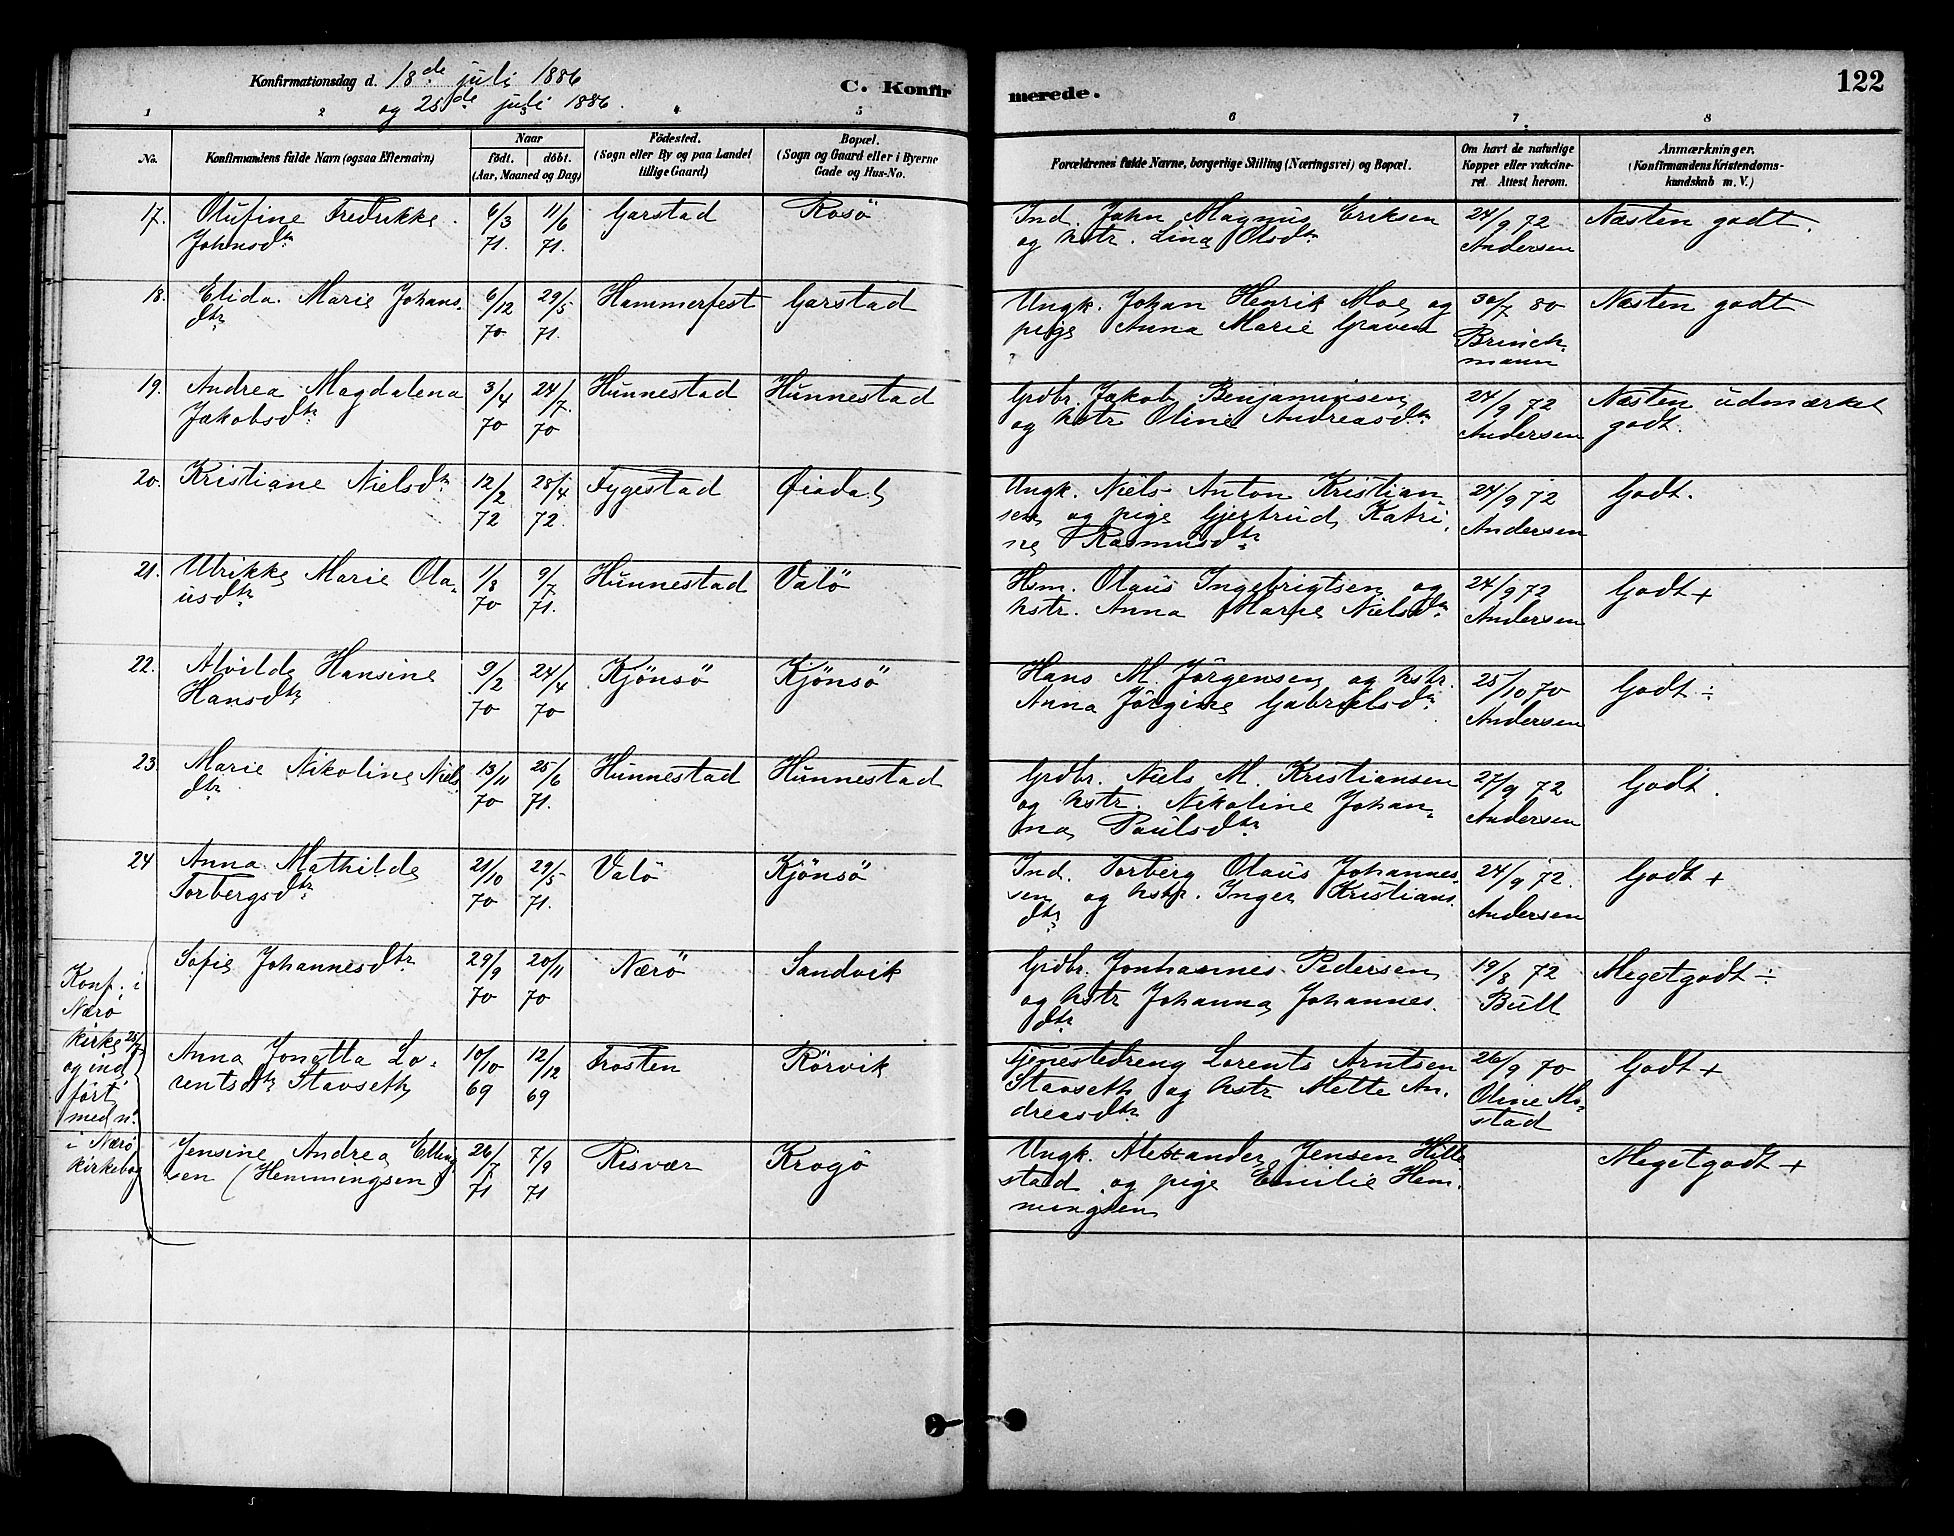 Konfirmationsdag d. 18de juli 1886
og 25de juli 1886.
C. Konfirmerede.
122
1 2 3 4 5 6 7 8
No.
Konfirmandens fulde Navn (ogsaa Efternavn)
Naar
födt. döbt.
(Aar, Maaned og Dag)
Födested.
(Sogn eller By og paa Landet
tillige Gaard)
Bopæl.
(Sogn og Gaard eller i Byerne
Gade og Hus-No.
Forældrenes fulde Navne, borgerlige Stilling (Næringsvei) og Bopæl.
Om havt de naturlige
Kopper eller vakcine-
ret. Attest herom.
Anmærkninger.
(Konfirmandens Kristendoms-
kundskab m. V.)
17. Olufine Fredrikke Johnsdtr 6/3 71. 11/6 71. Garstad Rosö Ind. John Magnus Eriksen og hstr. Lina Olsdtr. 24/9 72 Andersen Næsten godt.
18. Elida Marie Johansdtr 6/12 70 29/5 71. Hammerfest Garstad Ungk. Johan Henrik Moe og pige Anna Marie Graven 30/7 80 Brinchmann Næsten godt
19. Andrea Magdalena Jakobsdtr 3/4 70 24/7. 70 Hunnestad Hunnestad Grdbr. Jakob Benjaminsen og hstr Oline Andreasdtr. 24/9 72 Andersen Næsten udmærket godt.
20. Kristiane Nielsdtr 12/2 72 28/4 72. Fygestad Öiadal Ungk. Niels Anton Kristiansen og pige Gjertrud Katrine Rasmusdtr 24/9 72 Andersen Godt.
21. Ulrikke Marie Olausdtr 1/8 70 9/7 71. Hunnestad Valö Hsm. Olaus Ingebrigtsen og hstr. Anna Marie Nielsdtr. 24/9 72 Andersen Godt +
22. Alvilde Hansine Hansdtr 9/2 70 24/4 70 Kjönsö Kjönsö Hans M. Jörgensen og hstr. Anna Jörgine Gabrielsdtr. 25/10 70 Andersen Godt ÷
23. Marie Nikoline Nielsdtr 13/11 70 25/6 71. Hunnestad Hunnestad Grdbr. Niels M. Kristiansen og hstr. Nikoline Johanna Paulsdtr 27/9 72 Andersen Godt.
24 Anna Mathilde Torbergsdtr. 21/10 70 29/5 71. Valö Kjönsö Ind. Torberg Olaus Johannessen og hstr. Inger Kristiansdtr 24/9 72. Andersen Godt +
Konf. i
Nærö
kirke 25/7
og ind
fört
med nr.
i Nærö
kirkebog
Sofie Johannesdtr. 29/9 70 20/11 70 Nærö Sandvik Grdbr. Jonhannes Pedersen og hstr Johanna Johannesdtr 19/8 72 Bull Megetgodt ÷
Anna Jonetta Lorentsdtr Stavseth 10/10 69 12/12 69 Frosten Rörvik Tjenestedreng Lorents Arntsen Stavseth og hstr Mette Andreasdtr 26/9 70 Oline Mostad Godt +
Jensine Andrea Ellingsen (Hemmingsen) 26/7 71 7/9 71 Risvær Krogö Ungk. Alexander Jensen Hillestad og pige Emilie Hemmingsen Megetgodt +